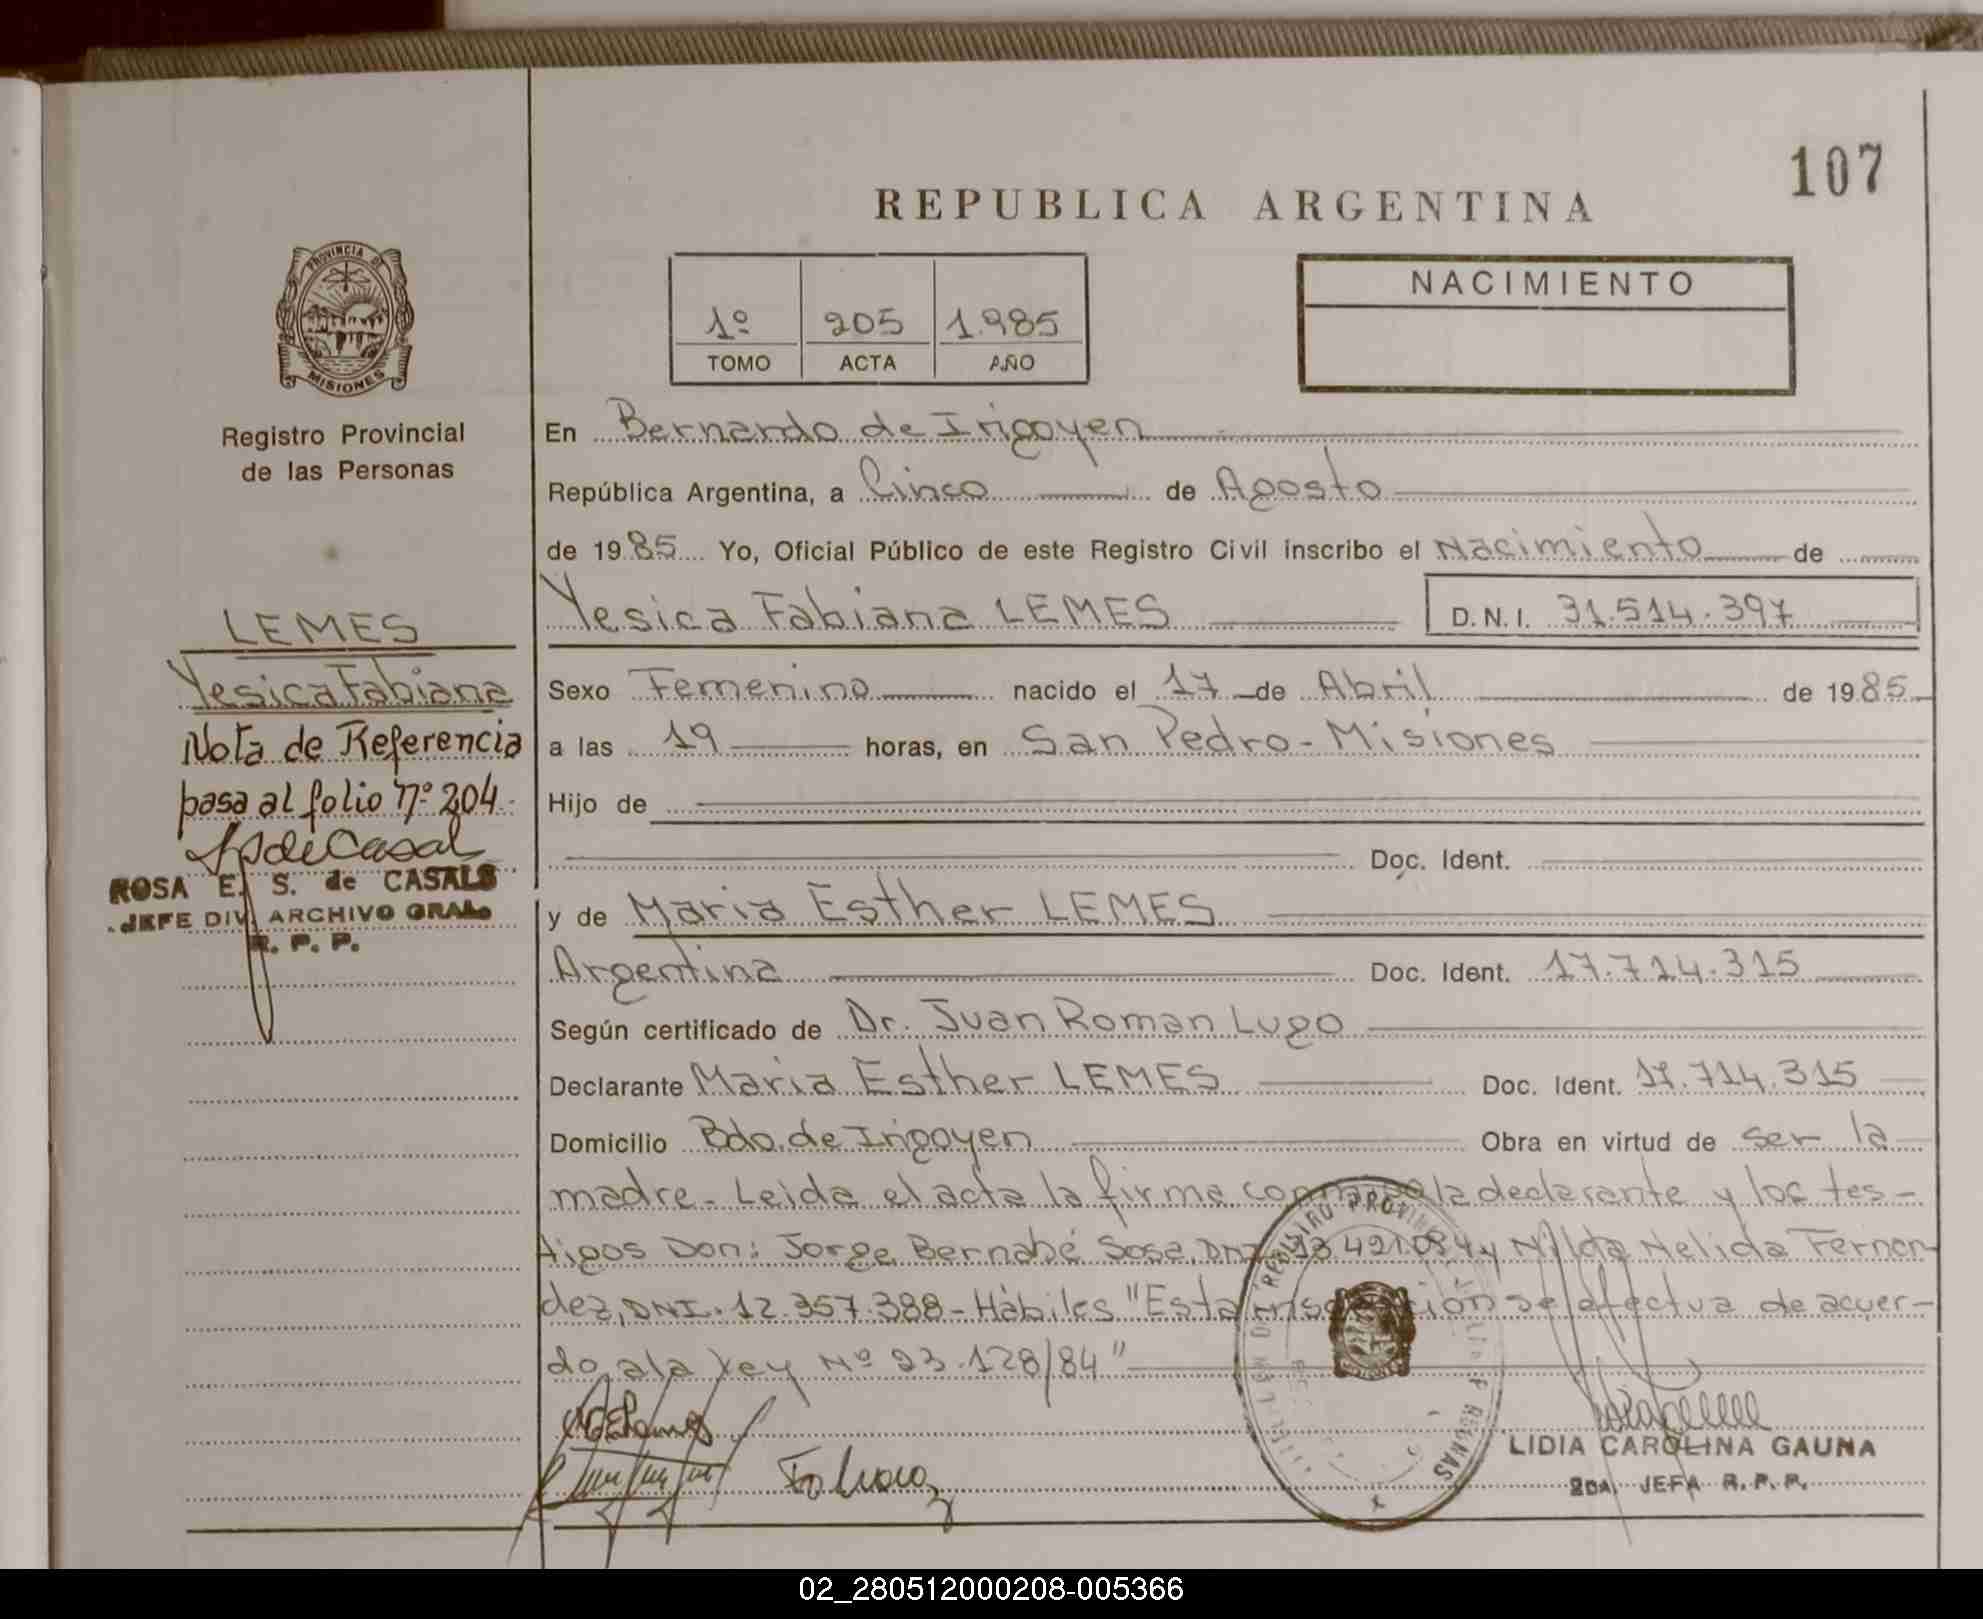 107
REPUBLICA ARGENTINA
PROVINCIA DE
MISIONES
1º 205 1.985
TOMO ACTA AÑO
NACIMIENTO
Registro Provincial
de las Personas
LEMES
Yesica Fabiana
Nota de Referencia
pasa al folio nº 204
ROSA E. S. de CASALS
JEFE DIV. ARCHIVO GRAL.
R. P. P.
En Bernardo de Irigoyen
República Argentina, a Cinco de Agosto
de 1985 Yo, Oficial Público de este Registro Civil inscribo el Nacimiento de
Yesica Fabiana LEMES D.N.I. 31.514.397
Sexo Femenino nacido el 17 de Abril de 1985
a las 19 horas, en San Pedro - Misiones
Hijo de
Doc. Ident.
y de Maria Esther LEMES
Argentina Doc. Ident. 17.714.315
Según certificado de Dr. Juan Roman Lugo
Declarante Maria Esther LEMES Doc. Ident. 17.714.315
Domicilio Bdo. de Irigoyen Obra en virtud de ser la
madre - Leida el acta la firma la declarante y los tes-
tigos Don: Jorge Bernabé Sosa, DNI y Nilda Nelida Fernan-
dez, DNI. 12.357.388 - Hábiles "Esta inscripcion se efectua de acuer-
do a la Ley Nº 23.128/84"
LIDIA CAROLINA GAUNA
2DA. JEFA R. P. P.
02_280512000208-005366